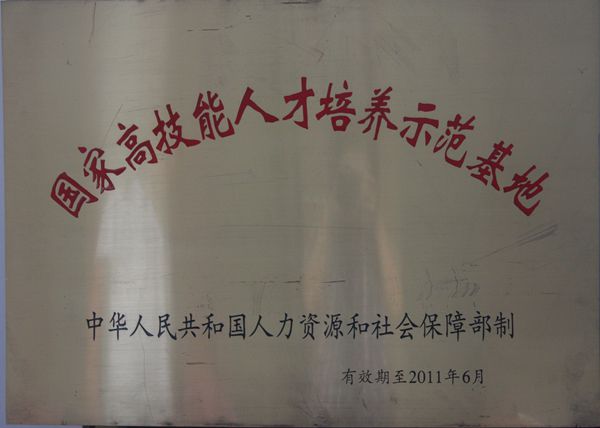 国家高技能人才培养示范基地
中华人民共和国人力资源和社会保障部制
有效期至2011年6月